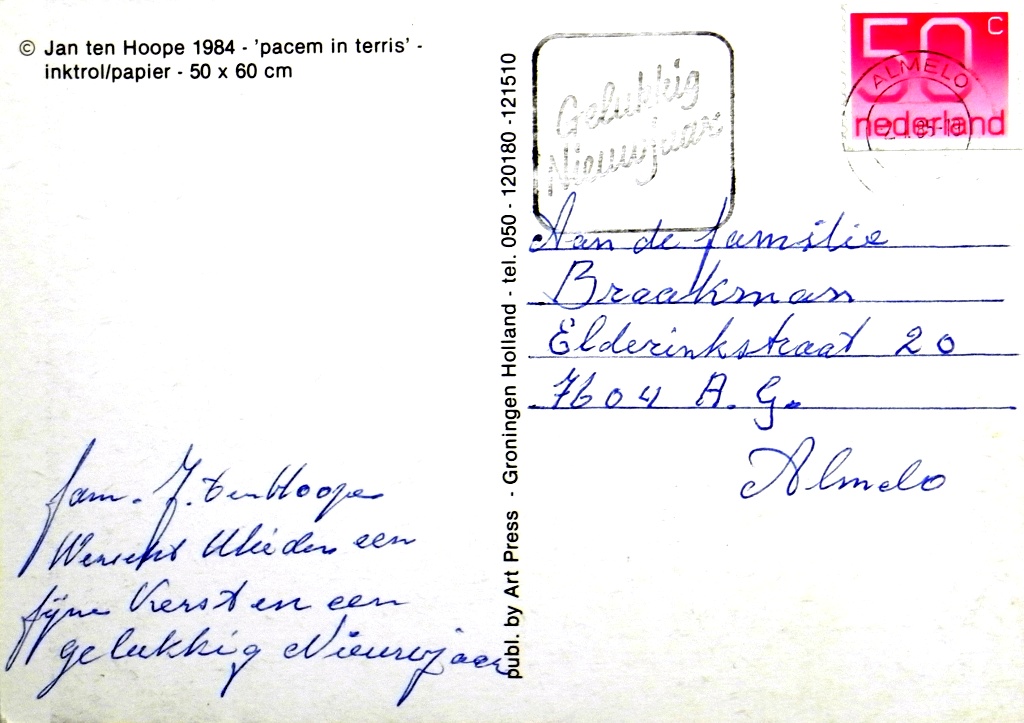 © Jan ten Hoope 1984 - 'pacem in terris' -
inktrol/papier - 50 x 60 cm
publ. by Art Press - Groningen Holland - tel. 050 - 120180 - 121510
Gelukkig
Nieuwjaar
50 c
nederland
ALMELO
Aan de familie
Braakman
Elderinkstraat 20
7604 A.G.
Almelo
fam. J. ten Hoope
Wenscht Ulieden een
fijne Kerst en een
gelukkig Nieuwjaar